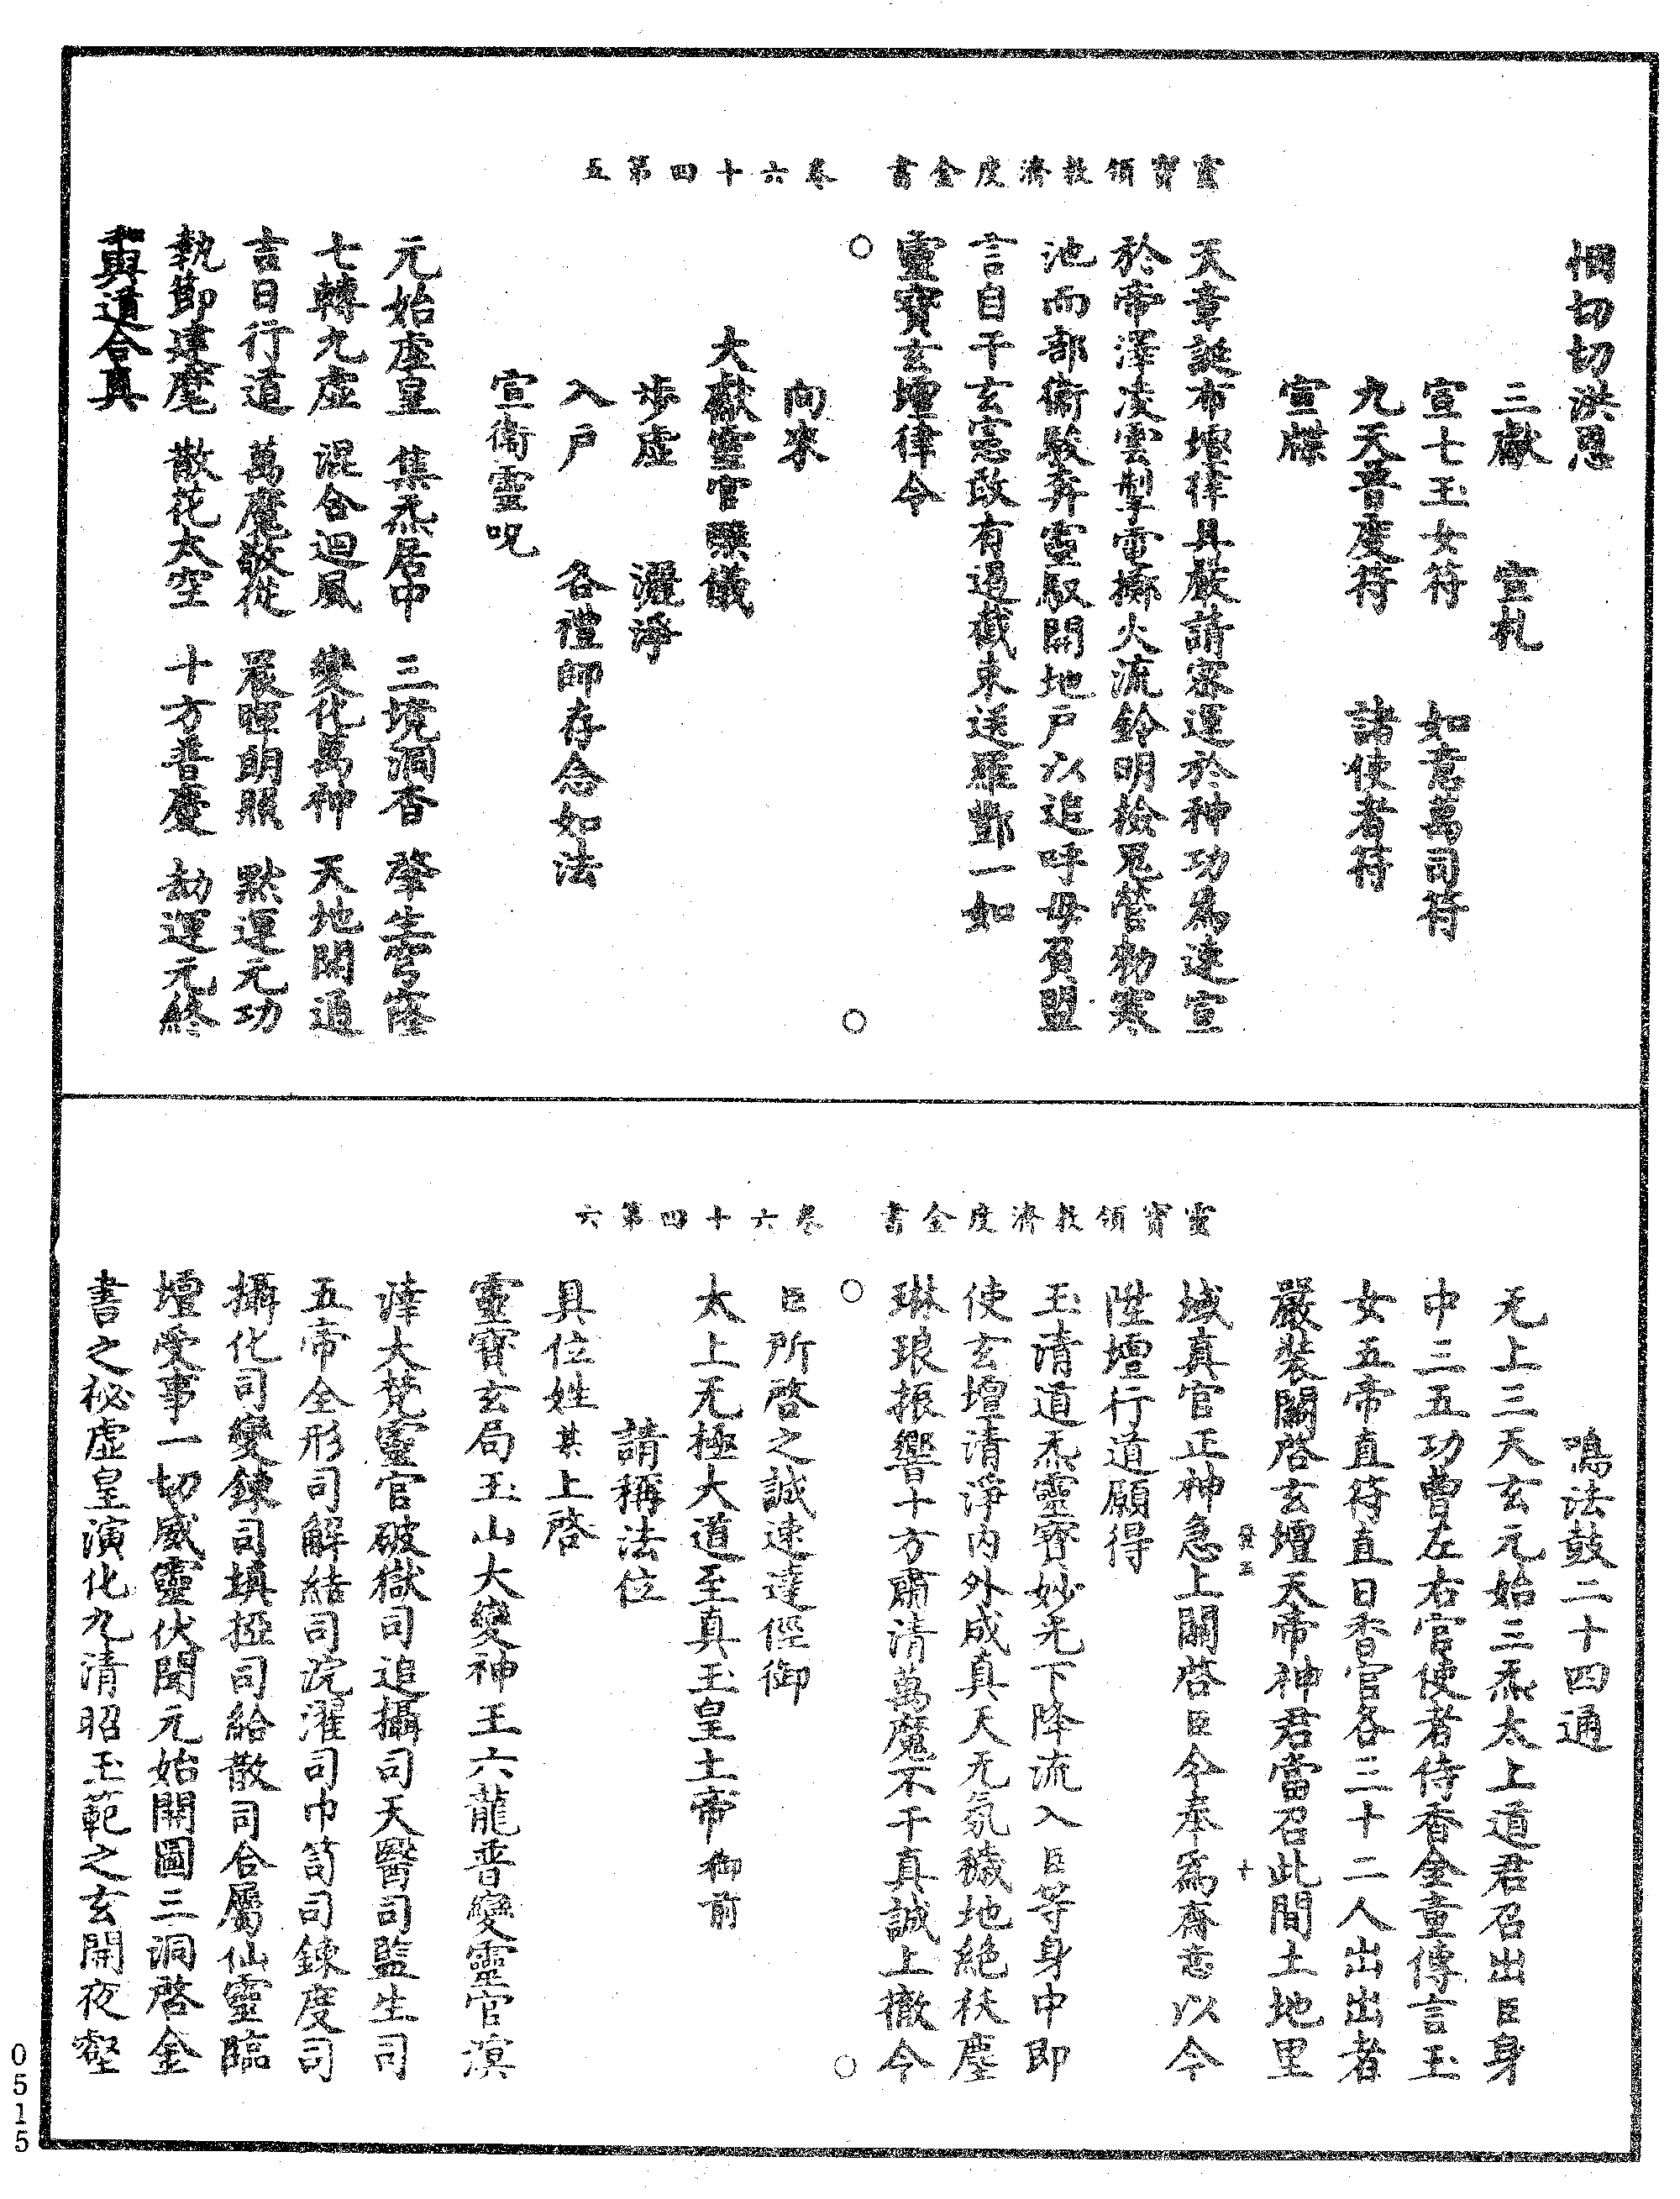 靈寶領教濟度金書　卷六十四第五
悃切切洪恩
三獻　宣札
宣七玉女符　如意萬司符
九天普度符　諸使者符
宣牒
天章誕布壇律具嚴請寀運於神功爲速宣
於帝澤凌雲掣電擲火流鈴明檢罪管勑寒
池而部衛駿奔靈馭開地户以追呼毋負盟
言自干玄憲敢有遏截束送羅酆一如
靈寶玄壇律令
○　○
向來
大獻靈官醮儀
步虛　灑淨
入户　各禮師存念如法
宣衛靈呪
元始虛皇　集炁居中　三境洞杳　肇生穹窿
七轉九虛　混合迴風　變化萬神　天地開通
吉日行道　萬魔敬從　晨暉朗照　默運元功
執節建麾　散花太空　十方普慶　劫運元終
和與道合真
靈寶領教濟度金書　卷六十四第六
鳴法鼓二十四通
无上三天玄元始三炁太上道君召出臣身
中三五功曹左右官使者侍香金童傳言玉
女五帝直符直日香官各三十二人出出者
嚴裝關啓玄壇天帝神君當召此間土地里
域真官正神急上關啓臣今奉爲齋意以今
陞壇行道願得
玉清道炁靈寶妙光下降流入臣等身中即
使玄壇清淨內外成真天无氛穢地絕袄塵
琳琅振響十方肅清萬魔不干真誠上徹今
○　○
臣所啓之誠速達徑御
太上无極大道至真玉皇上帝御前
請稱法位
具位姓某上啓
靈寶玄局玉山大變神王六龍普變靈官溟
涬大梵靈官破獄司追攝司天醫司監生司
五帝全形司解結司浣濯司巾笥司鍊度司
攝化司變鍊司填掗司給散司合屬仙靈臨
壇受事一切威靈伏聞元始開圖三洞啓金
書之祕虛皇演化九清昭玉範之玄開夜壑
0515